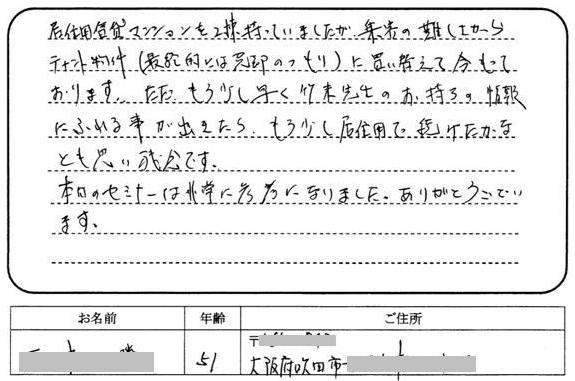 居住用賃貸マンションを2棟持っていましたが、集客の難しさから
テナント物件(最終的には売却のつもり)に買い替えて今もって
おります。ただ、もう少し早く竹末先生のお持ちの情報
にふれる事が出来たら、もう少し居住用で続けたかな
とも思い残念です。
本日のセミナーは非常に参考になりました。ありがとうござい
ます。
お名前 年齢 ご住所
51 〒
大阪府吹田市